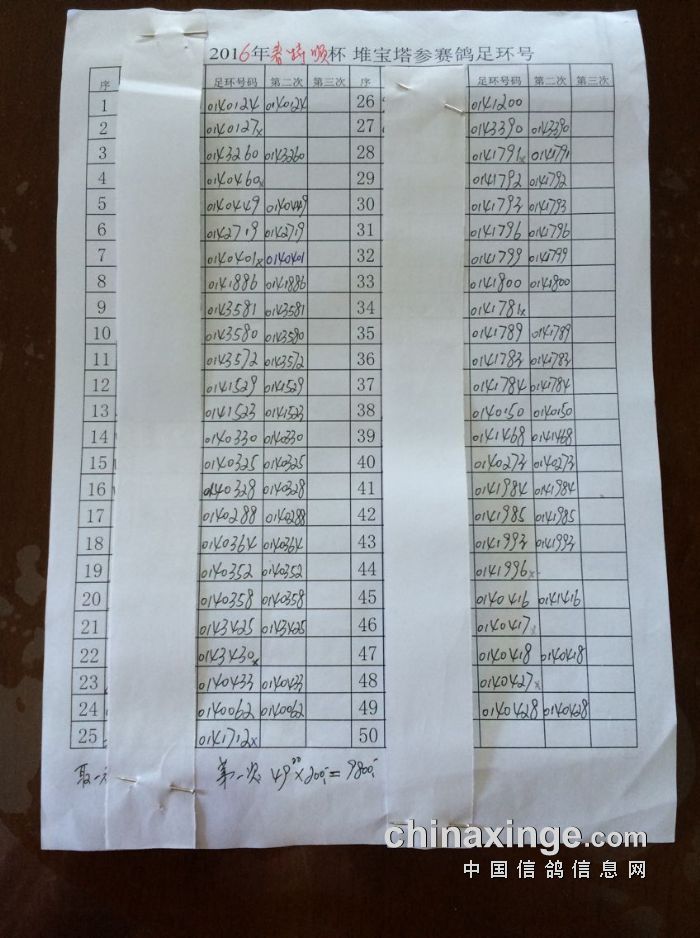 2016年春特顺杯 堆宝塔参赛鸽足环号
序 足环号码 第二次 第三次 序 足环号码 第二次 第三次
1 0140124 0140124 26 0141200
2 0140127x 27 0143390 0143390
3 0143260 0143260 28 0141791x 0141791
4 0140460x 29 0141792 0141792
5 0140449 0140449 30 0141793 0141793
6 0142719 0142719 31 0141796 0141796
7 0140401x 0140401 32 0141799 0141799
8 0141886 0141886 33 0141800 0141800
9 0143581 0143581 34 0141781x
10 0143580 0143580 35 0141789 0141789
11 0143572 0143572 36 0141783 0141783
12 0141529 0141529 37 0141784 0141784
13 0141523 0141523 38 0140150 0140150
14 0140330 0140330 39 0141468 0141468
15 0140325 0140325 40 0140273 0140273
16 0140328 0140328 41 0141984 0141984
17 0140288 0140288 42 0141985 0141985
18 0140364 0140364 43 0141993 0141993
19 0140352 0140352 44 0141996x
20 0140358 0140358 45 0140416 0141416
21 0143425 0143425 46 0140417x
22 0143430x 47 0140418 0140418
23 0140433 0140433 48 0140427x
24 0140062 0140062 49 0140428 0140428
25 0141712x 50
第一次: 49×200=9800
chinaxinge.com
中国信鸽信息网